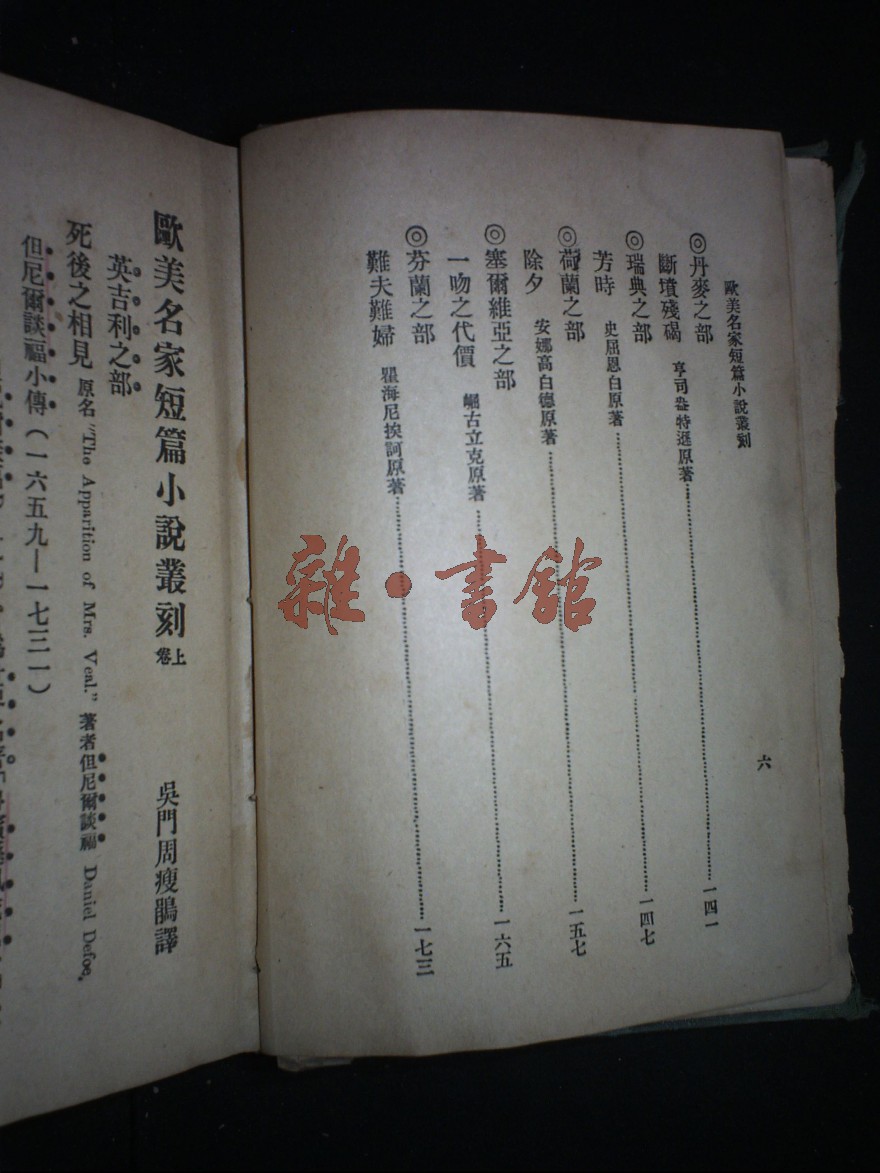 歐美名家短篇小說叢刻
六
◎丹麥之部
斷墳殘碣 亨司盎特遜原著……一四一
◎瑞典之部
芳時 史屈恩白原著……一四七
◎荷蘭之部
除夕 安娜高白德原著……一五七
◎塞爾維亞之部
一吻之代價 崛古立克原著……一六五
◎芬蘭之部
難夫難婦 瞿海尼挨訶原著……一七三
歐美名家短篇小說叢刻 上卷
吳門周瘦鵑譯
英吉利之部
死後之相見 原名 "The Apparition of Mrs. Veal." 著者但尼爾談福 Daniel Defoe.
但尼爾談福小傳(一六五九—一七三一)
雜·書館